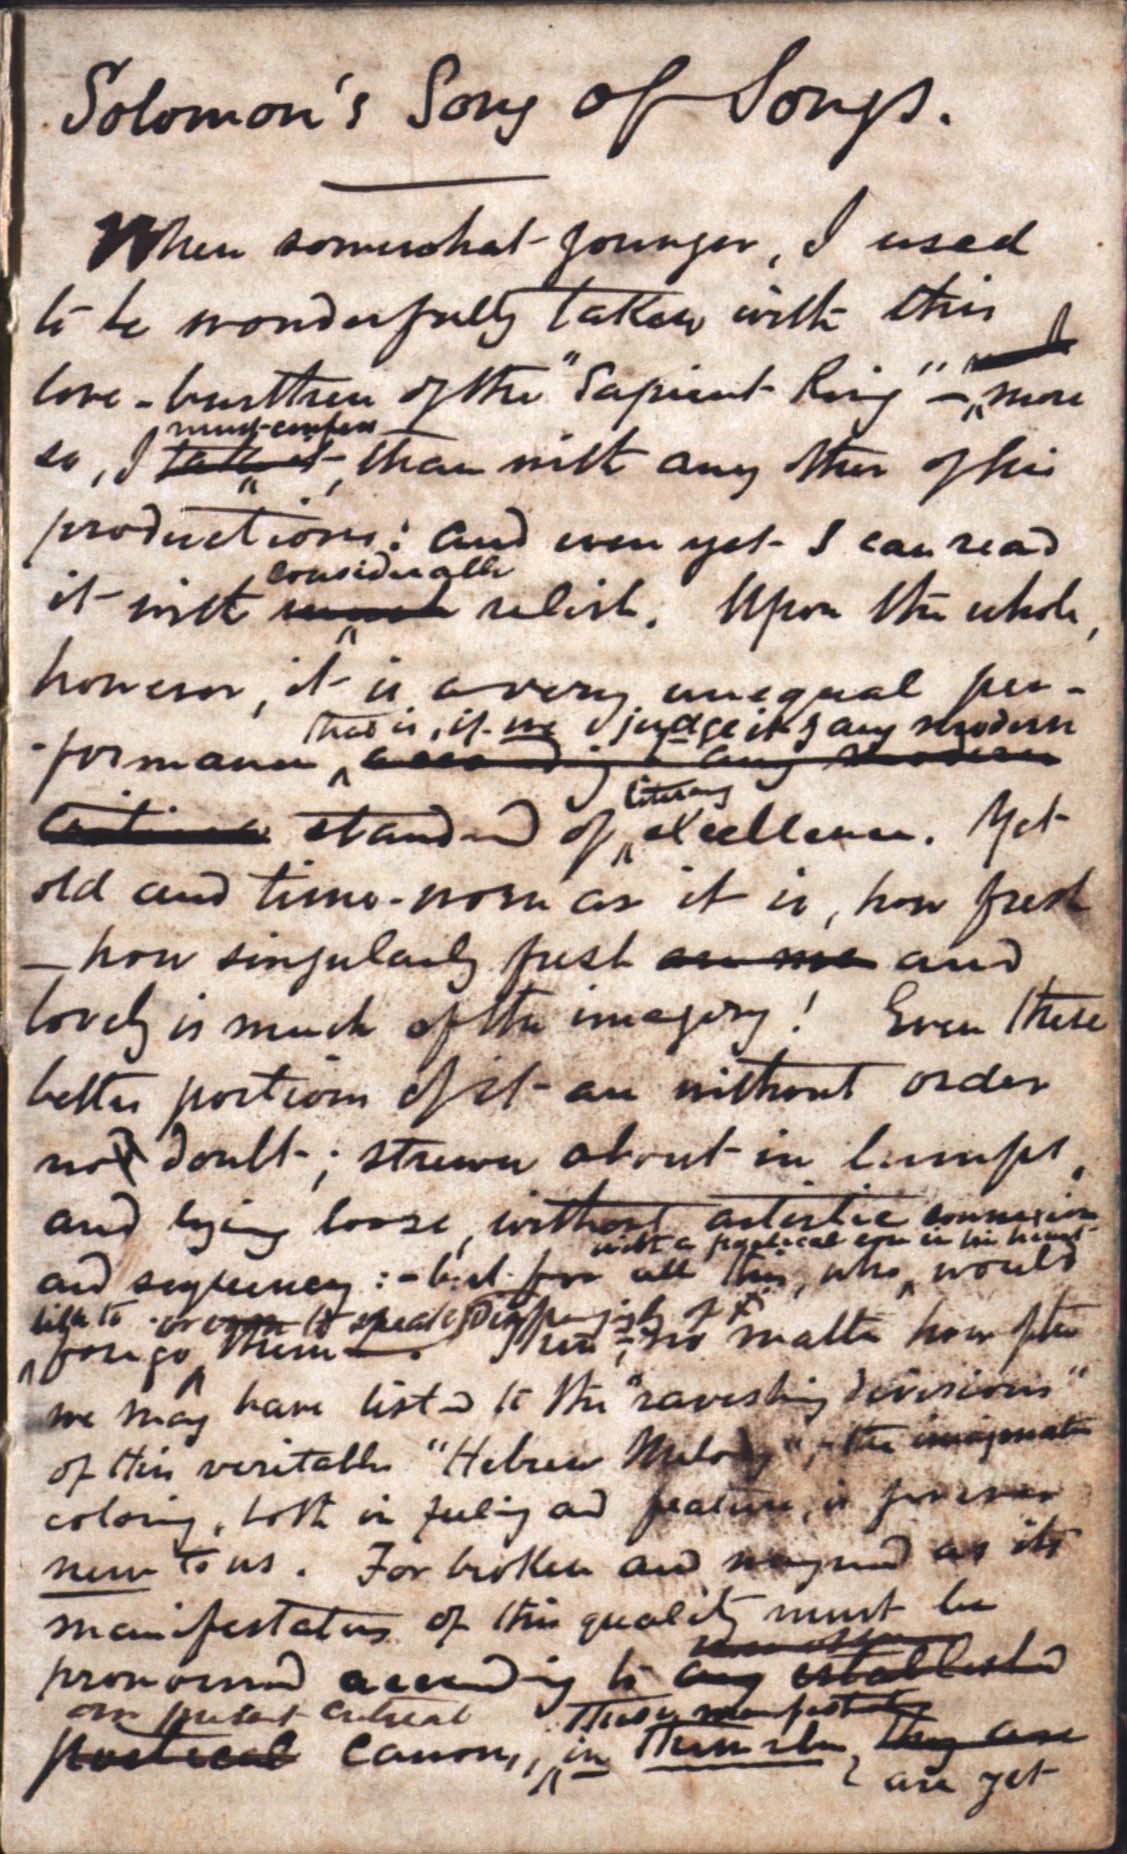 Solomon's Song of Songs.
When somewhat younger, I used
to be wonderfully taken with this
love-burthen of the "Sapient King" — more
must confess
so, I than with any other of his
productions: and even yet I can read
considerable
it with much relish. Upon the whole,
however, it is a very unequal per-
that is, if we judge it by any modern
-formance according to any modern
literary
critical standard of excellence. Yet
old and time-worn as it is, how fresh
— how singularly fresh and
lovely is much of the imagery! Even these
better portions of it are without order
no doubt; strewn about in lumps,
and lying loose, without artistic connexion
with a poetical ear in his heart
and sequency: — but for all this, who would
like to or to speak disparagingly of
forego them. Then, no matter how often
we may have listd to the "ravishing divisions"
of this veritable "Hebrew Melody", the imaginative
coloring, both in feeling and feature, is forever
new to us. For broken and as its
manifestations of this quality must be
pronounced according to any established
our present critical these manifestations
poetical canon, in themselves, they are
are yet